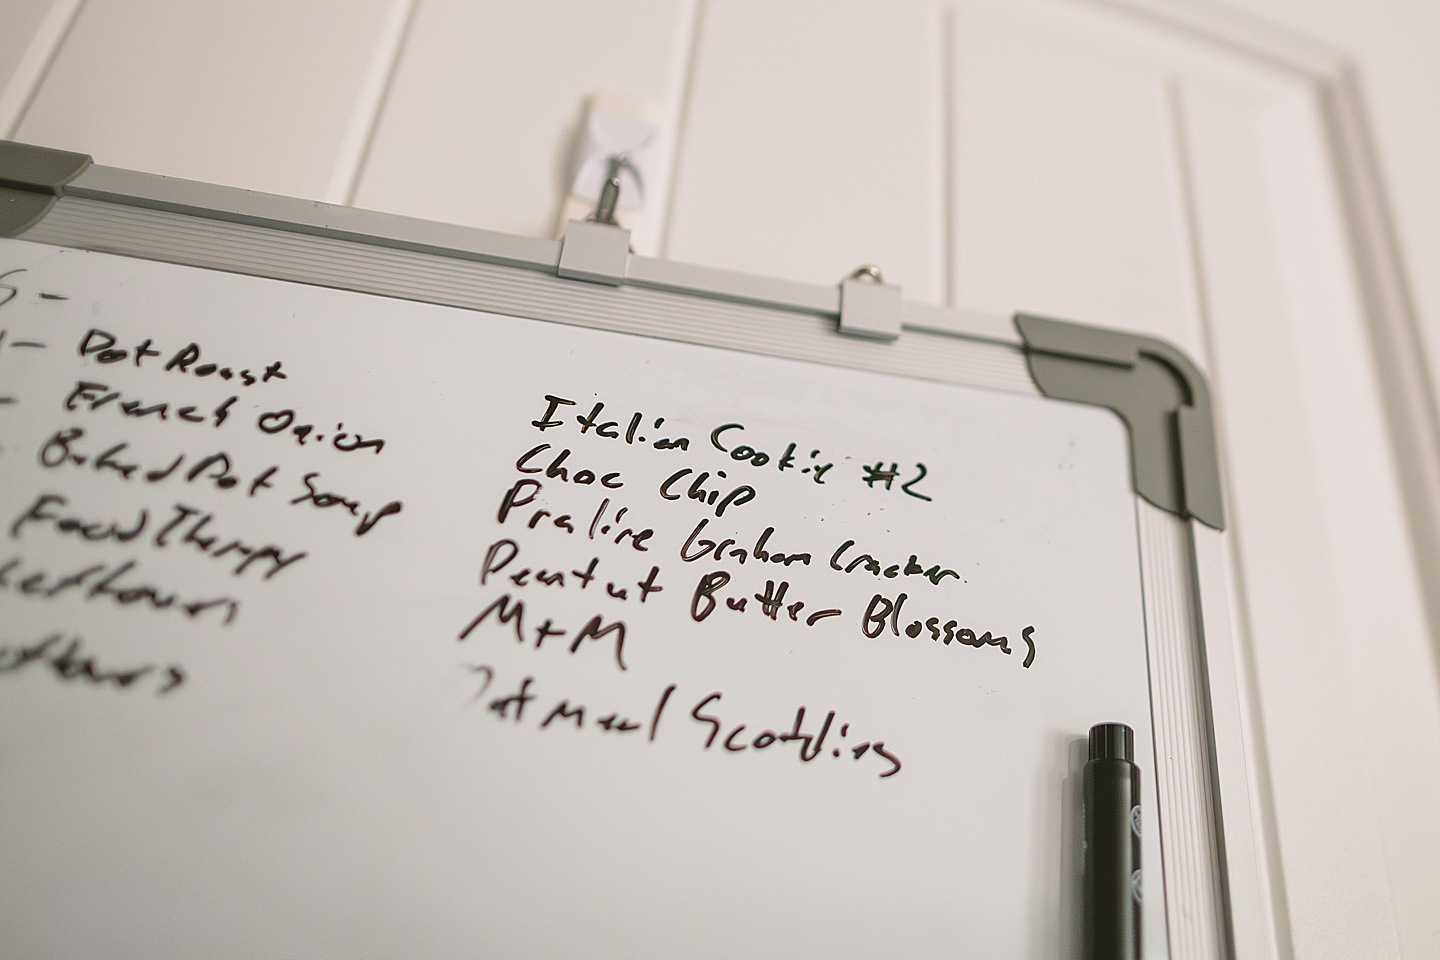 S -
- Pot Roast
- French Onion
- Baked Pot Soup
Food Therapy
Leftovers
Leftovers
Italian Cookie #2
Choc Chip
Praline Graham Cracker
Peanut Butter Blossoms
M+M
Oatmeal Scotchies